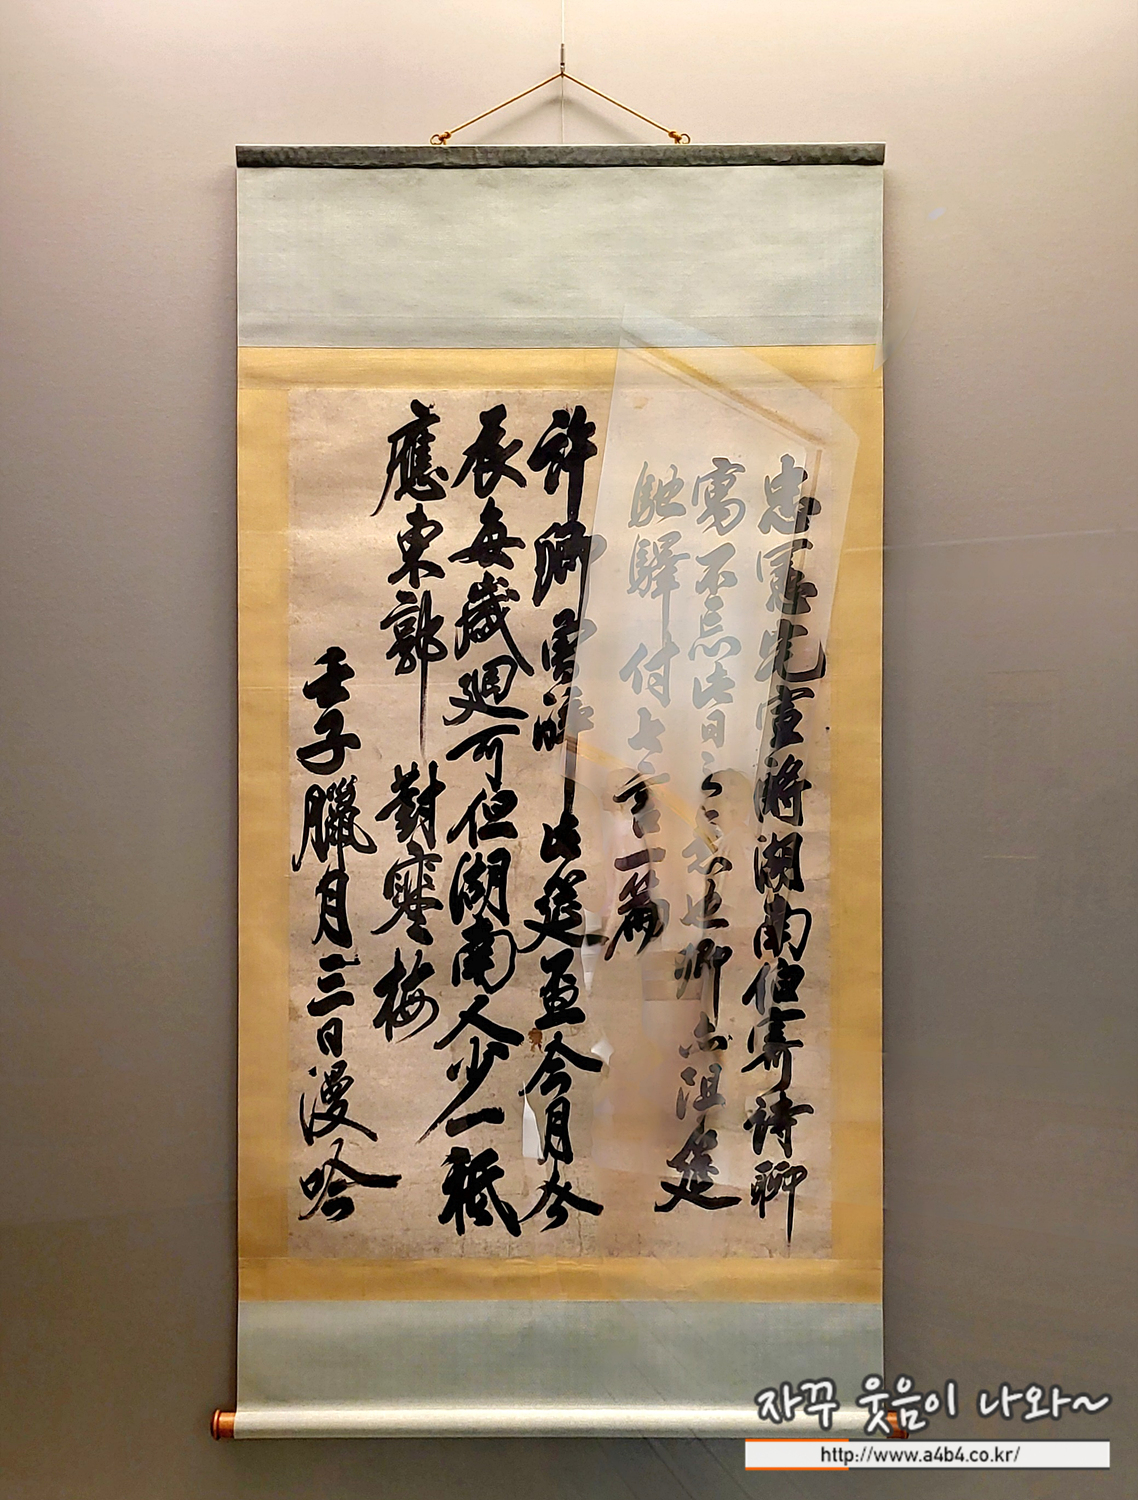 忠憲先室將湖南伯寄詩聊
寓不忘此日之
馳驛付七言一篇
許卿曾
此筵盃今月今
辰每歲迴可但湖南人少一祗
應東郭對寒梅
壬子臘月三日漫吟
자꾸 웃음이 나와~
http://www.a4b4.co.kr/